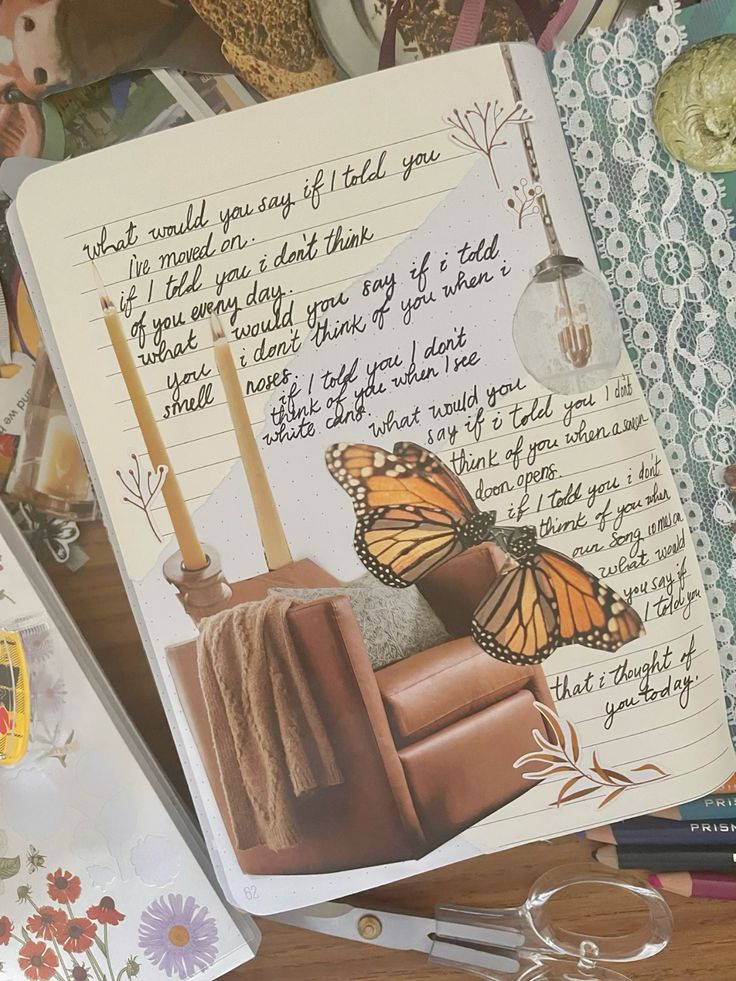 what would you say if I told you
I've moved on.
if I told you i don't think
of you every day.
what would you say if i told
you i don't think of you when i
smell noses.
if I told you I don't
think of you when I see
white cans.
what would you
say if i told you I don't
think of you when a
door opens.
if I told you i don't
think of you when
our song comes on
what would
you say if
I told you
that i thought of
you today.
62
PRISM
PRISM